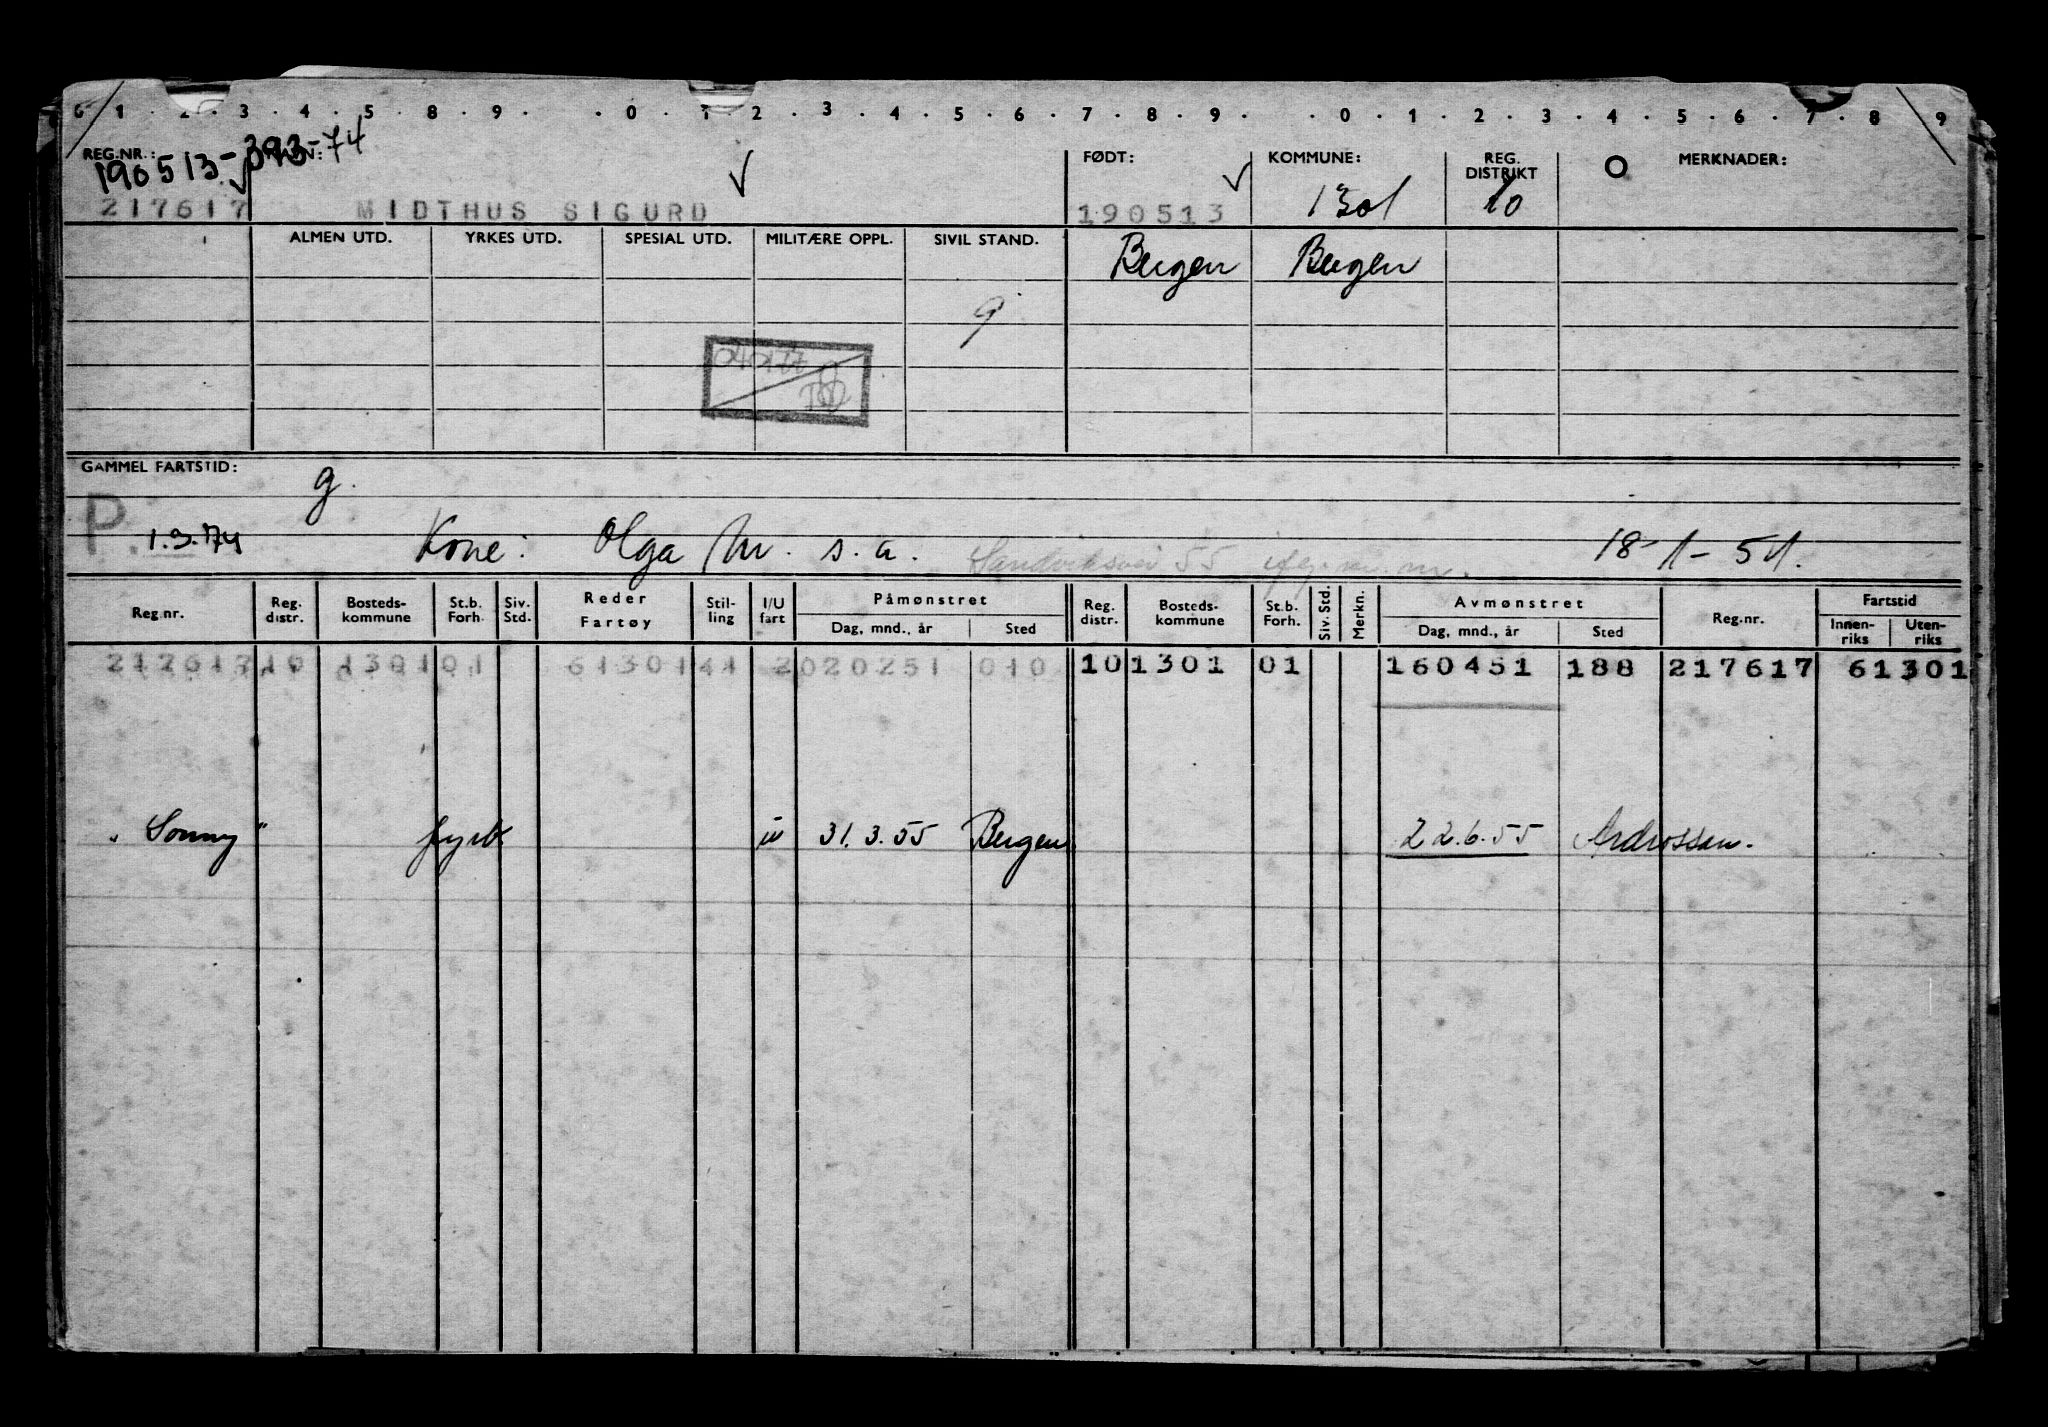 6 1 . 2 . 3 . 4 . 5 . 8 . 9 . . 0 . 1 . 2 . 3 . 4 . 5 . 6 . 7 . 8 . 9 . . 0 . 1 . 2 . 3 . 4 . 5 . 6 . 7 . 8 . 9
REG.NR.: NAVN: FØDT: KOMMUNE: REG. DISTRIKT O MERKNADER:
190513-393-74
217617 MIDTHUS SIGURD 190513 1301 10
ALMEN UTD. YRKES UTD. SPESIAL UTD. MILITÆRE OPPL. SIVIL STAND. Bergen Bergen
g
040177
GAMMEL FARTSTID: g.
P. 1.3.74 Kone: Olga M. s.a. Sandviksvei 55 18-1-51.
Reg.nr. Reg. distr. Bosteds-kommune St.b. Forh. Siv. Std. Reder Fartøy Stil-ling I/U fart Påmønstret Dag, mnd., år Sted Reg. distr. Bosteds-kommune St.b. Forh. Siv. Std. Merkn. Avmønstret Dag, mnd., år Sted Reg.nr. Fartstid Innen-riks Uten-riks
217617 10 1301 01 61301 41 2 020251 010 10 1301 01 160451 188 217617 61301
"Sonny" fyrb. u 31.3.55 Bergen 22.6.55 Ardrossan.